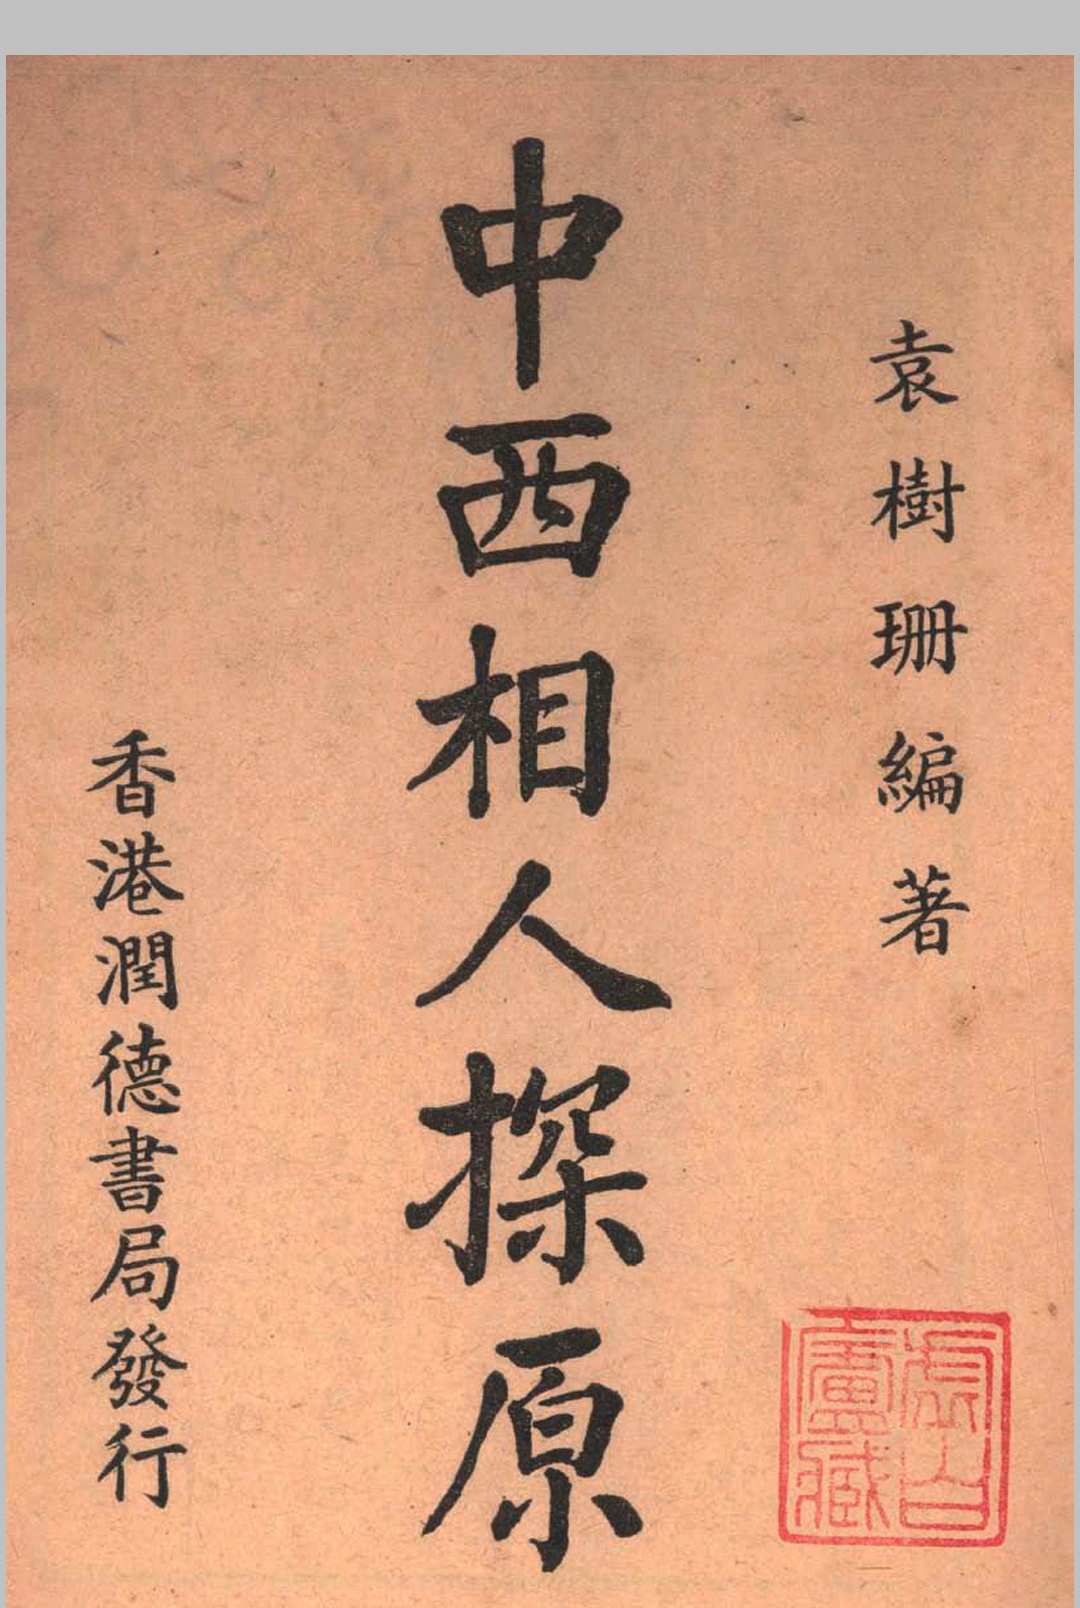 袁樹珊編著
中西相人探原
香港潤德書局發行